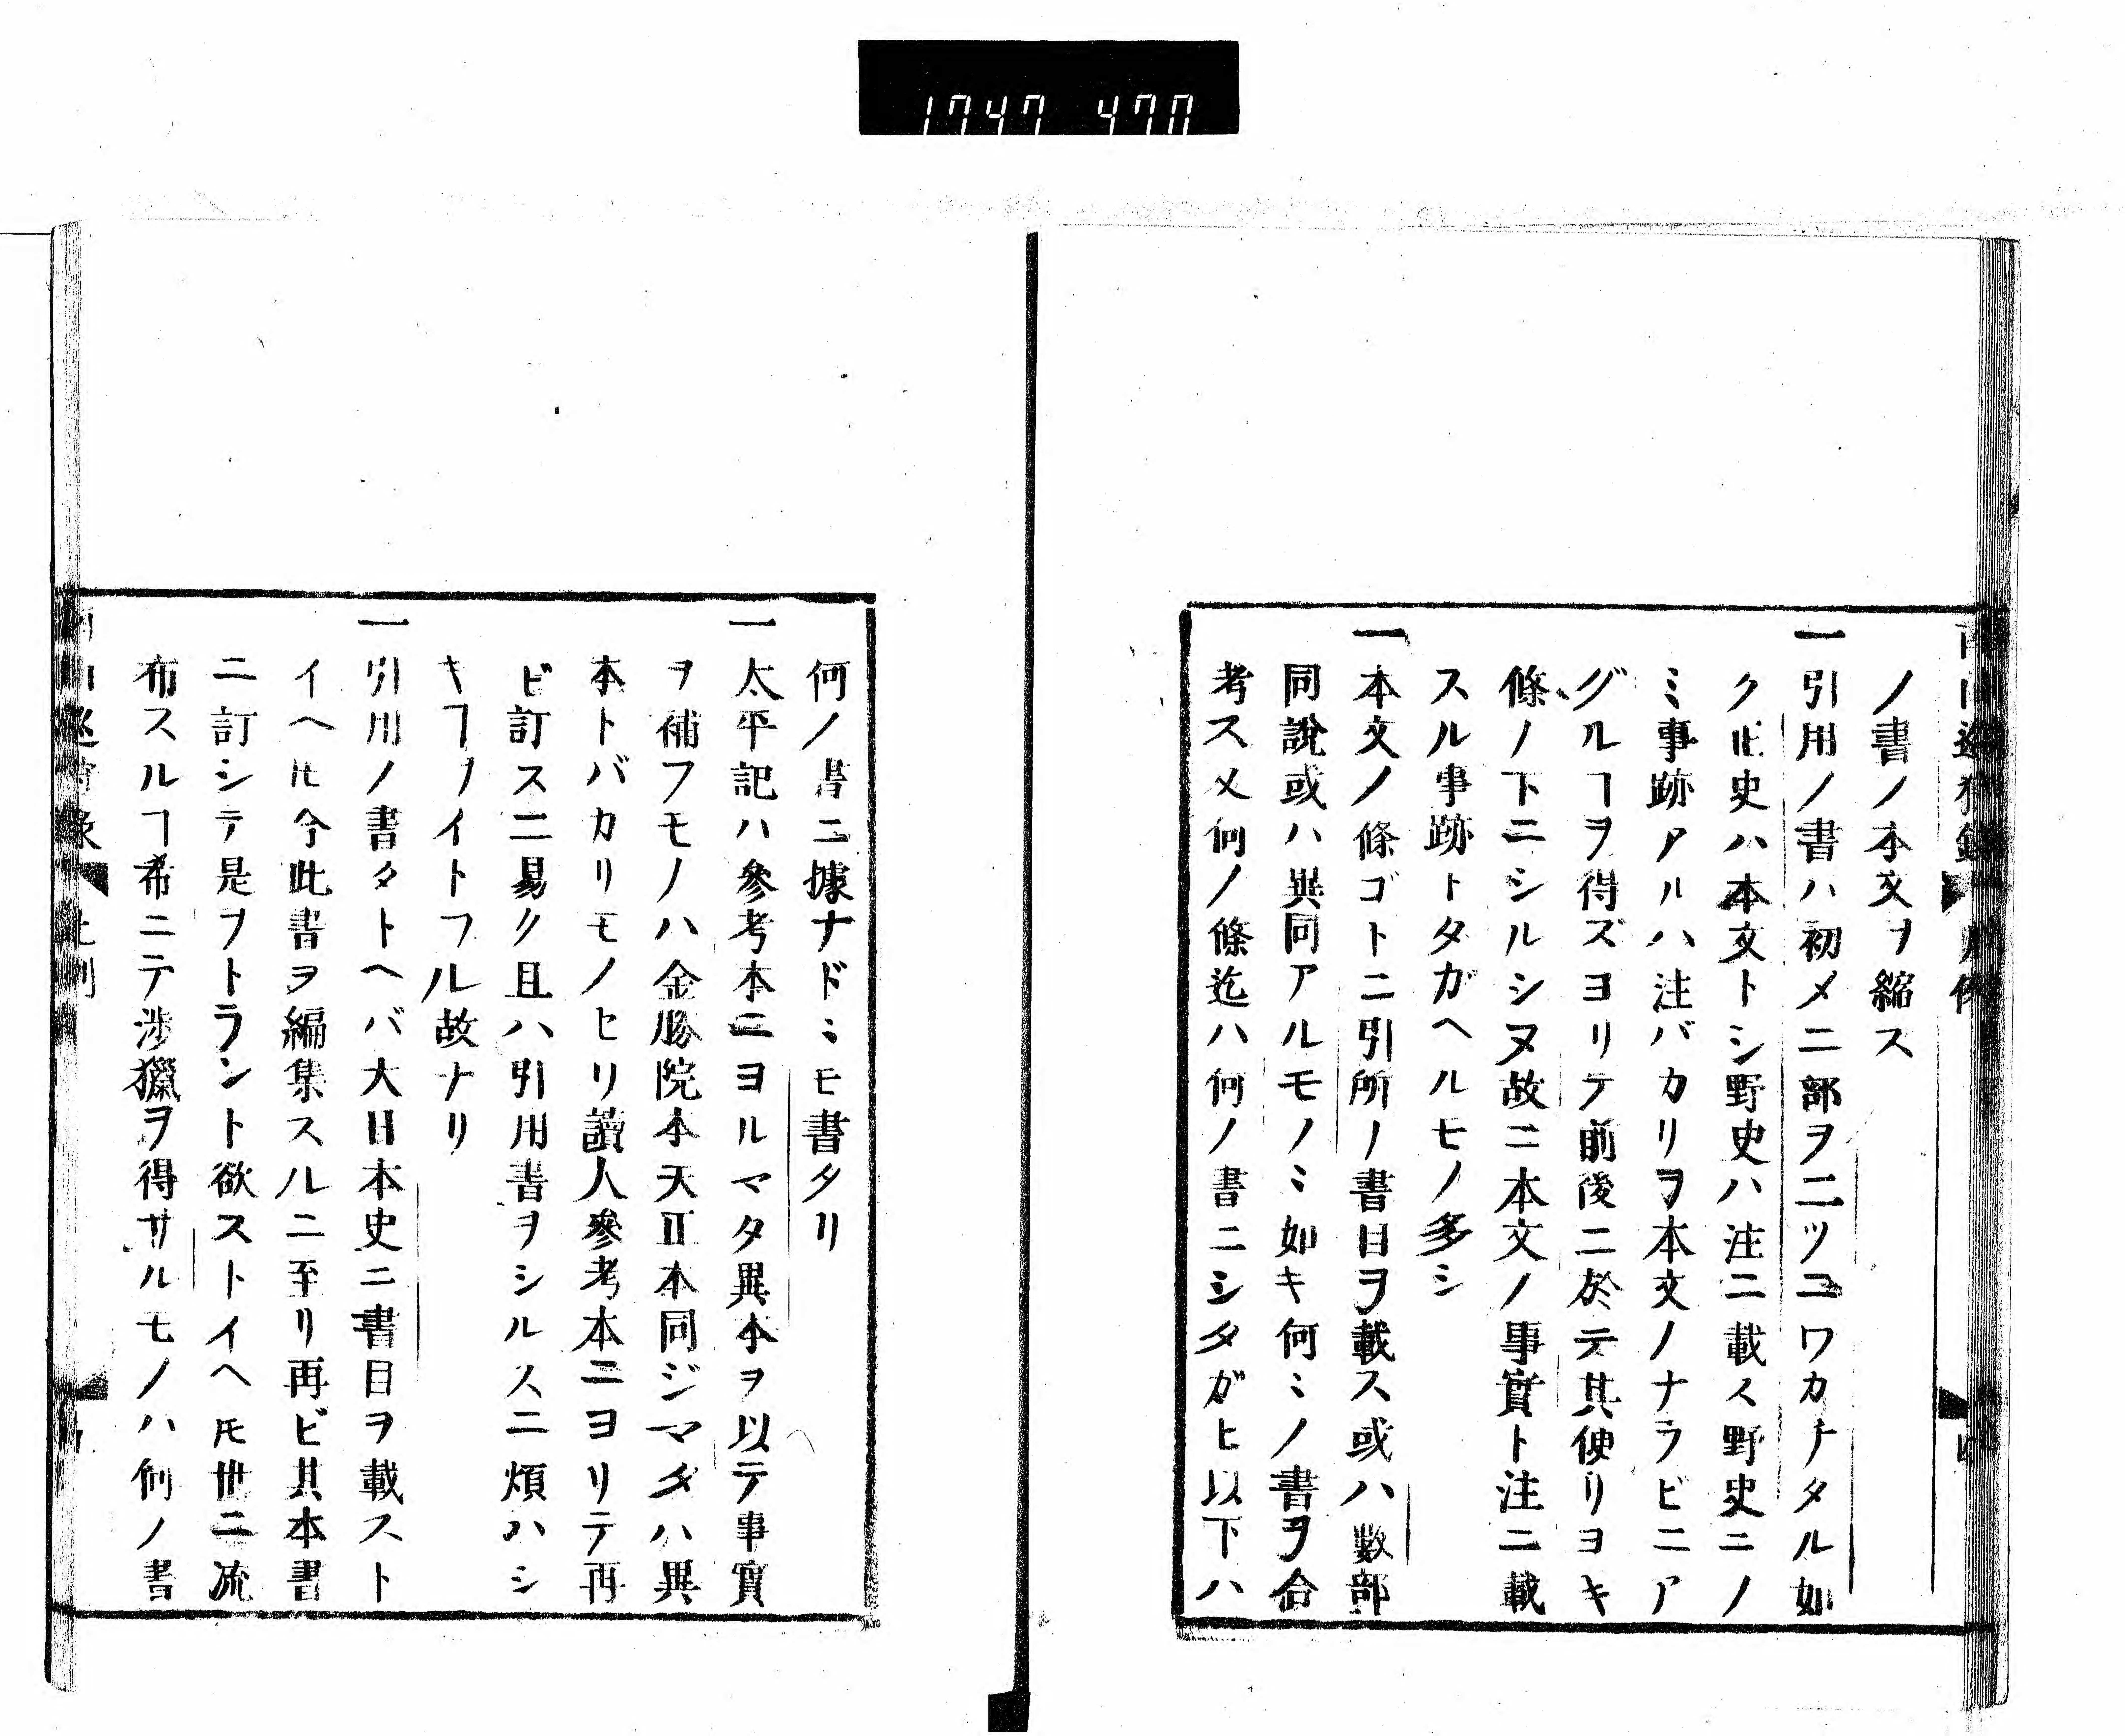 1747 470
ノ書ノ本文ヲ縮ス
一引用ノ書ハ初メニ部ヲ二ツニワカチタル如
ク正史ハ本文トシ野史ハ注ニ載ス野史ニノ
ミ事跡アルハ注バカリヲ本文ノナラビニア
グルヿヲ得ズヨリテ前後ニ於テ其便リヨキ
條ノ下ニシルシヌ故ニ本文ノ事實ト注ニ載
スル事跡トタガヘルモノ多シ
一本文ノ條ゴトニ引所ノ書目ヲ載ス或ハ數部
同說或ハ異同アルモノミ如キ何ミノ書ヲ合
考ス又何ノ條迄ハ何ノ書ニシタガヒ以下ハ
何ノ書ニ據ナドミモ書タリ
一太平記ハ參考本ニヨルマタ異本ヲ以テ事實
ヲ補フモノハ金勝院本天正本同ジマタハ異
本トバカリモノヒリ讀人參考本ニヨリテ再
ビ訂スニ易ク且ハ引用書ヲシルスニ煩ハシ
キヿノイトフル故ナリ
一引用ノ書タトヘバ大日本史ニ書目ヲ載スト
イヘ𪜈今此書ヲ編集スルニ至リ再ビ其本書
ニ訂シテ是ヲトラント欲ストイヘ𪜈世ニ流
布スルヿ希ニテ涉獵ヲ得サルモノハ何ノ書